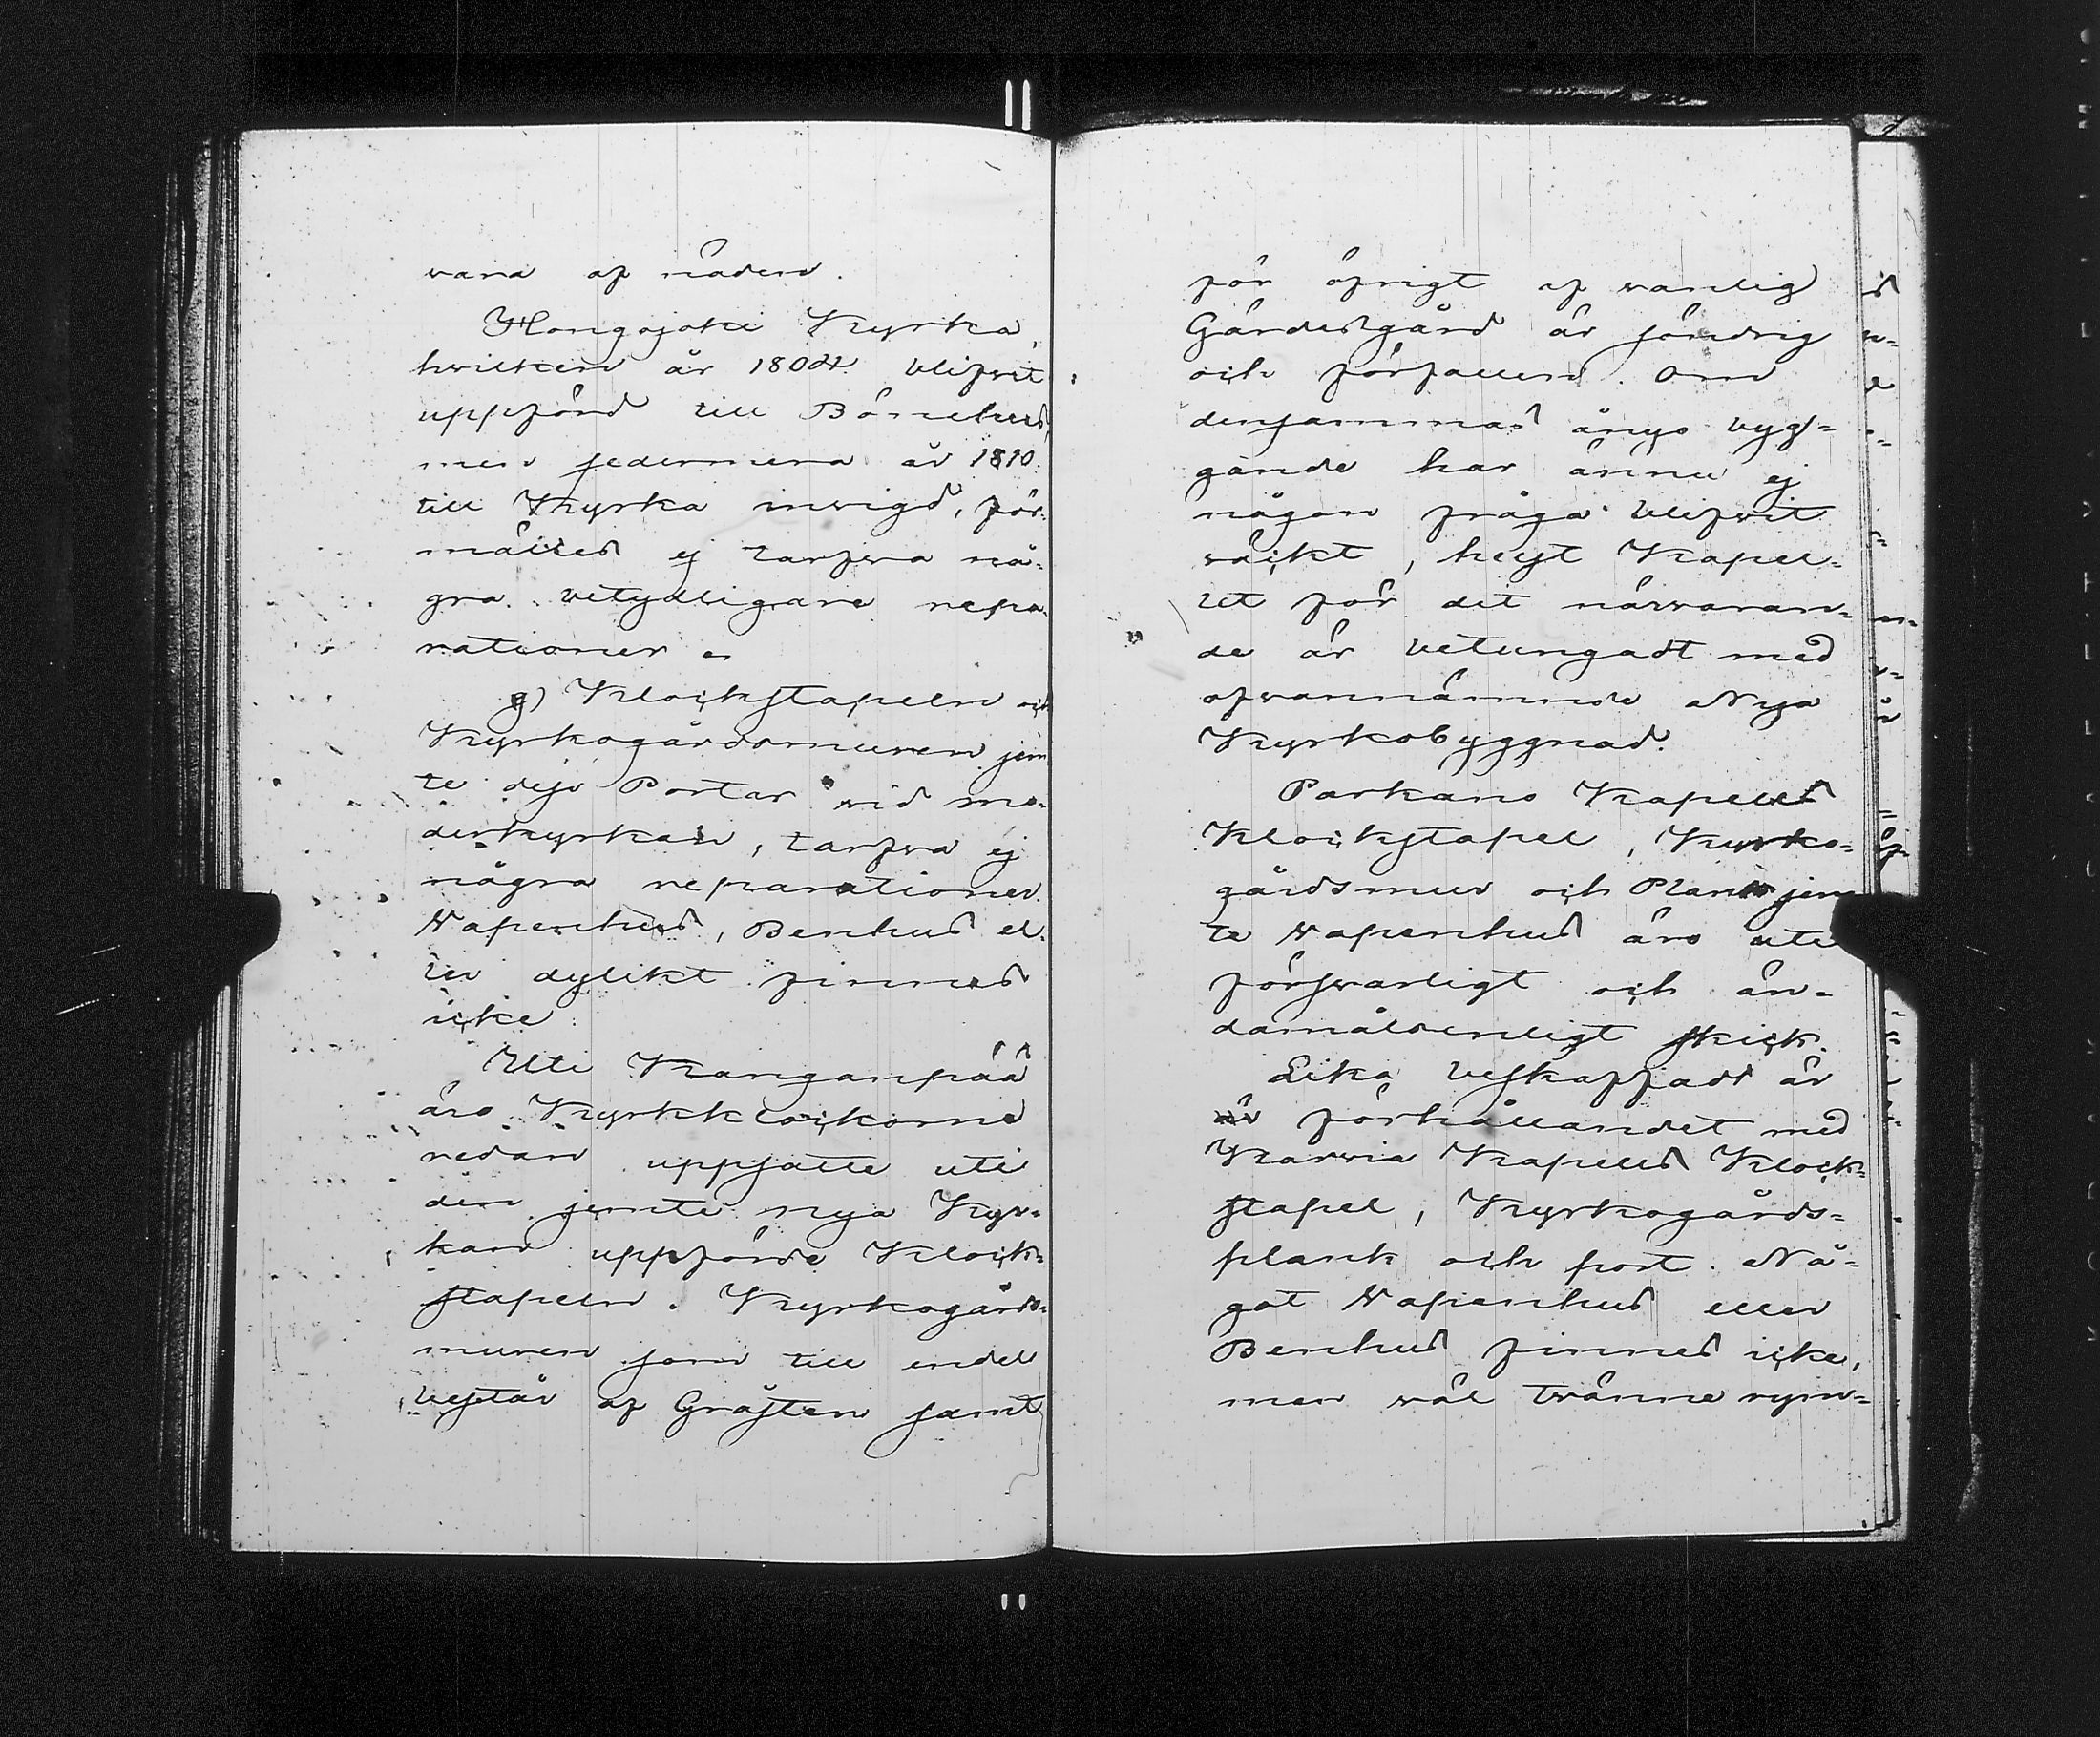 vara af nöden.
Hongojoki Kyrka,
hvilken år 1804 blifvit
uppförd till Bönehus,
men sedermera år 1810.
till Kyrka invigd, för-
mältes ej tarfva nå-
gra betydligare repa-
rationer.
g) Klockstapeln och
Kyrkogårdsmuren jem
te dess Portar vid mo-
derkyrkan, tarfva ej
några reparationer.
Vapenhus, Benhus el-
ler dylikt finnes
icke.
Uti Kanganpää
äro Kyrkklockorne
redan uppsatte uti
den jemte nya Kyr-
kan uppförde Klock-
stapeln. Kyrkogårds-
muren som till endel
består af Gråsten samt
för öfrigt af vanlig
Gärdesgård är söndrig
och förfallen. Om
densammas ånyo byg-
gande har ännu ej
någon fråga blifvit
väckt, helst Kapel-
let för det närvaran-
de är betungadt med
ofvannämnde Nya
Kyrkobyggnad.
Parkano Kapells
Klockstapel, Kyrko-
gårdsmur och Plank jem
te Vapenhus äro uti
försvarligt och än-
damålsenligt skick.
Lika beskaffadt är
är förhållandet med
Karvia Kapells Klock-
stapel, Kyrkogårds-
plank och port. Nå-
got Vapenhus eller
Benhus finnes icke,
men väl tvänne rym-